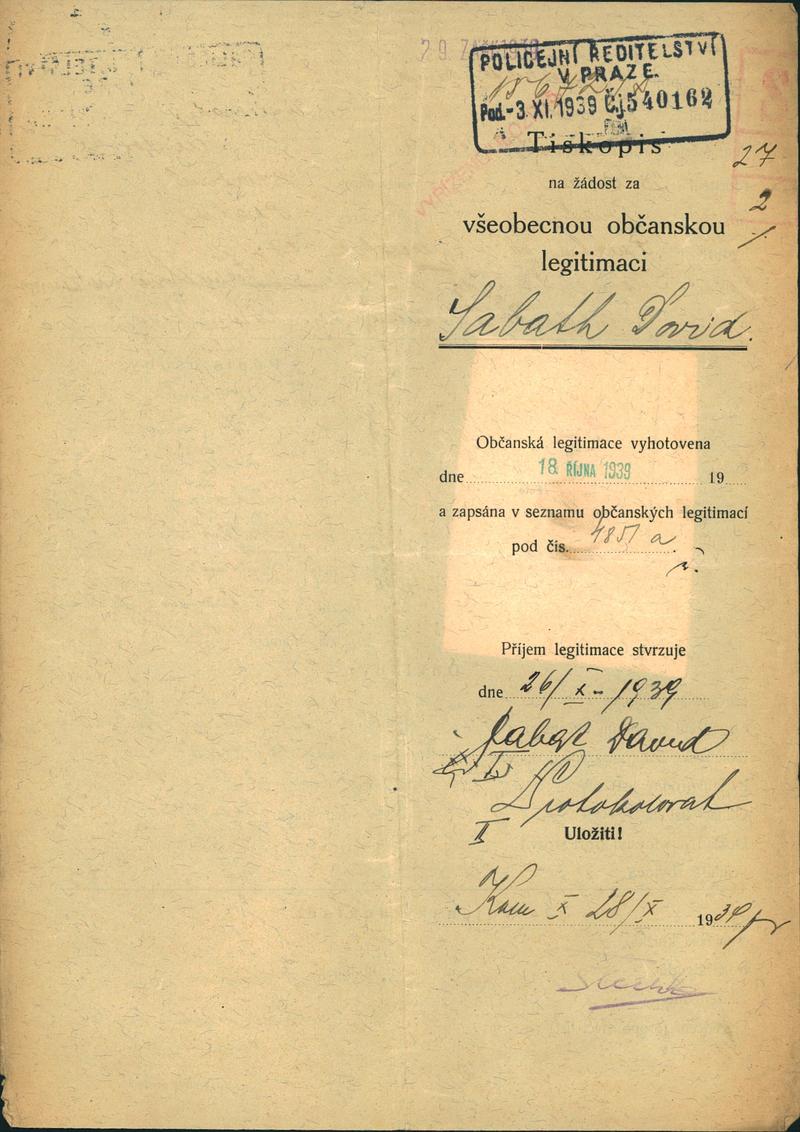 29. ZÁŘÍ 1939
POLICEJNÍ ŘEDITELSTVÍ
V PRAZE.
Pod. -3. XI. 1939 Čj 540162
Tiskopis
27
na žádost za
2
všeobecnou občanskou
legitimaci
Sabath David.
Občanská legitimace vyhotovena
dne 18. ŘÍJNA 1939 19
a zapsána v seznamu občanských legitimací
pod čís. 4851 a
Příjem legitimace stvrzuje
dne 26/X - 1939
Sabat David
Protokolovat
II
Uložiti!
Kom X 28/X 1939